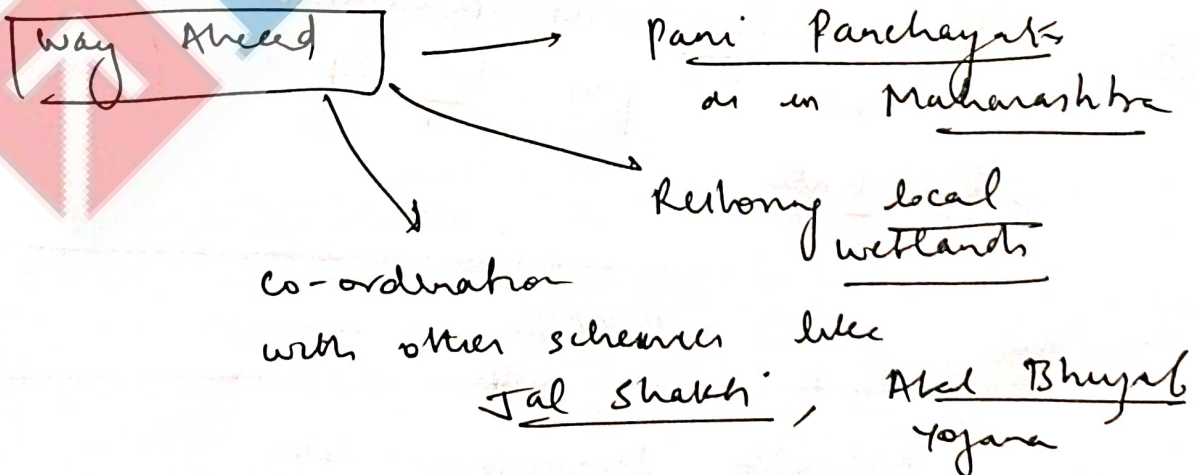 Way Ahead
Pani Panchayats
as in Maharashtra
Restoring local
wetlands
co-ordination
with other schemes like
Jal Shakti, Atal Bhujal
Yojana